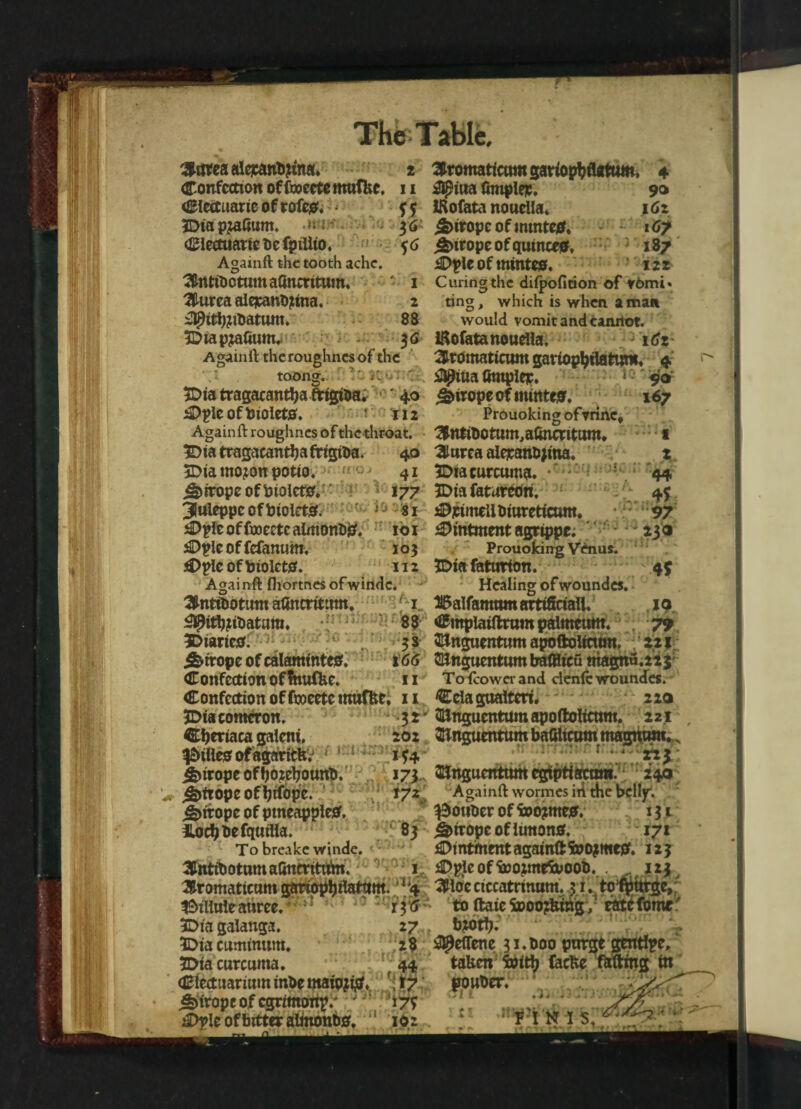 The Table.
Aurea alexandrina. 2
Confection of sweete muske. 11
Electuarie of roses. 55
Dia prasium. 36
Electuarie de spillio. 56
Against the tooth ache.
Antidotum asincritum. 1
Aurea alexandrina. 2
Mithridatum. 88
Dia prasium. 36
Against the roughnes of the
toong.
Dia tragacantha frigida. 40
Oyle of violets. 112
Against roughnes of the throat.
Dia tragacantha frigida. 40
Dia moron potio. 41
Sirope of violets. 177
Juleppe of violets. 81
Oyle of sweete almonds. 101
Oyle of sesanum. 103
Oyle of violets. 112
Against shortnes of winde.
Antidotum asincritum. 1
Mithridatum. 88
Diaries. 38
Sirope of calamintes. 166
Confection of muske. 11
Confection of sweete muske. 11
Dia comeron. 32
Theriaca galeni. 202
Pilles of agarick. 154
Sirope of horehound. 173
Sirope of hisope. 172
Sirope of pineapples.
Loch de squilla. 83
To breake winde.
Antidotum asincritum. 1
Aromaticum gariophilatum. 4
Pillule auree. 136
Dia galanga. 27
Dia cuminum. 28
Dia curcuma. 44
Electuarium inde maioris. 17
Sirope of egrimony. 175
Oyle of bitter almonds. 102
Aromaticum gariophilatum. 4
Miua simplex. 90
Rosata nouella. 162
Sirope of mintes. 167
Sirope of quinces. 187
Oyle of mintes. 122
Curing the disposition of vomi-
ting, which is when a man
would vomit and cannot.
Rosata nouella. 162
Aromaticum gariophilatum. 4
Miua simplex. 90
Sirope of mintes. 167
Prouoking of vrine,
Antidotum, asincritum. 1
Aurea alexandrina. 2
Dia curcuma. 44
Dia satureon. 45
Oximell diureticum. 97
Ointment agrippe. 230
Prouoking Venus.
Dia saturion. 45
Healing of woundes.
Balsamum artificiall. 10
Emplaistrum palmeum. 79
Unguentum apostolicum. 221
Unguentum basilicū magnū. 223
To scower and clense woundes.
Cela gualteri. 220
Unguentum apostolicum. 221
Unguentum basilicum magnum.
223
Unguentum egiptiacum. 240
Against wormes in the belly.
Pouder of wormes. 131
Sirope of limons. 171
Ointment against wormes. 123
Oyle of wormewood. 123
Aloe ciccatrinum. 31. to spurge,
to staie woorking, eate some
broth.
Messene 31. doo purge gentlye,
taken with sacke fasting in
pouder.
FINIS.